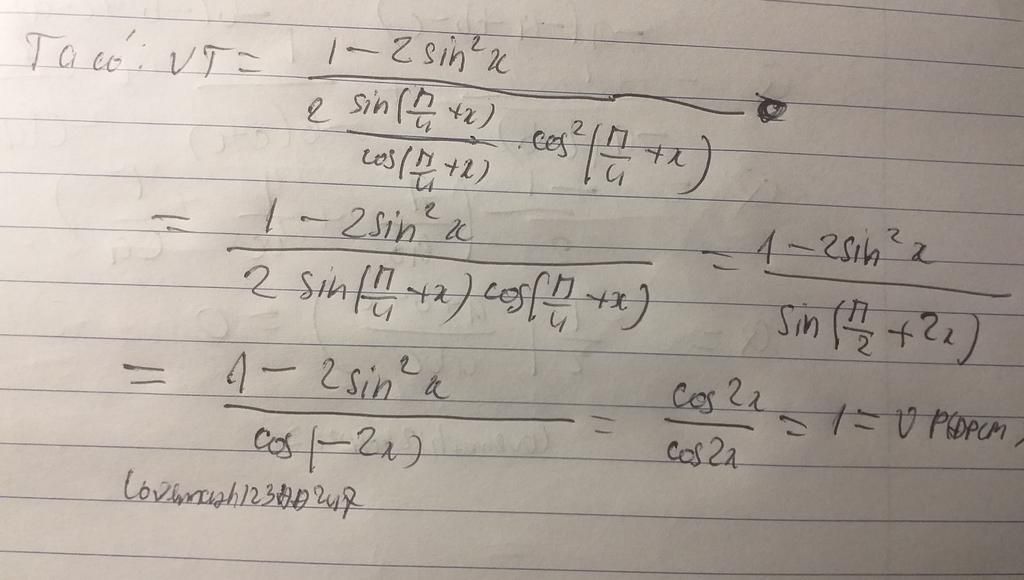 Ta có: VT = (1 - 2sin²x) / (2 (sin(π/4 + x) / cos(π/4 + x)) . cos²(π/4 + x))
= (1 - 2sin²x) / (2 sin(π/4 + x) cos(π/4 + x)) = (1 - 2sin²x) / (sin(π/2 + 2x))
= (1 - 2sin²x) / (cos(-2x)) = cos2x / cos2x = 1 = VP(ĐPCM)